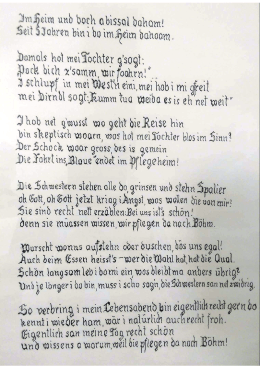 Im Heim und doch a bissal daham!
Seit 5 Jahren bin i do im Heim dahoam.
Damals hot mei Tochter g'sagt:
Pack dich z'samm, wir foahrn!"
I schlupf in mei Westn eini, mei hob i mi gfreit
mei Dirndl sagt: Kumm tua weida es is eh net weit"
I hob net g'wusst wo geht die Reise hin
bin skeptisch woarn, was hot mei Tochter blos im Sinn?
Der Schock waar gross, des is gemein
Die Fahrt ins Blaue endet im Pflegeheim!
Die Schwestern stehen alle do, grinsen und stehn Spalier
oh Gott, oh Gott jetzt kriag i Angst, was wolen die von mir!
Sie sind recht nett erzählen: Bei uns ist's schön!
denn sie müassen wissen, wir pflegen da nach Böhm.
Wurscht wanns aufstehn oder duschen, dös uns egal!
Auch beim Essen heisst's - wer die Wahl hat, hat die Qual.
Schön langsam leb i do mi ein was bleibt ma anders übrig?
Und je länger i do bin, muss i scho sagn, die Schwestern san net zwidrig.
So verbring i mein Lebensabend bin eigentlich recht gern do
kennt i wieder ham, wär i natürlich auch recht froh.
Eigentlich san meine Tag recht schön
und wissens a warum, weil die pflegen da nach Böhm!